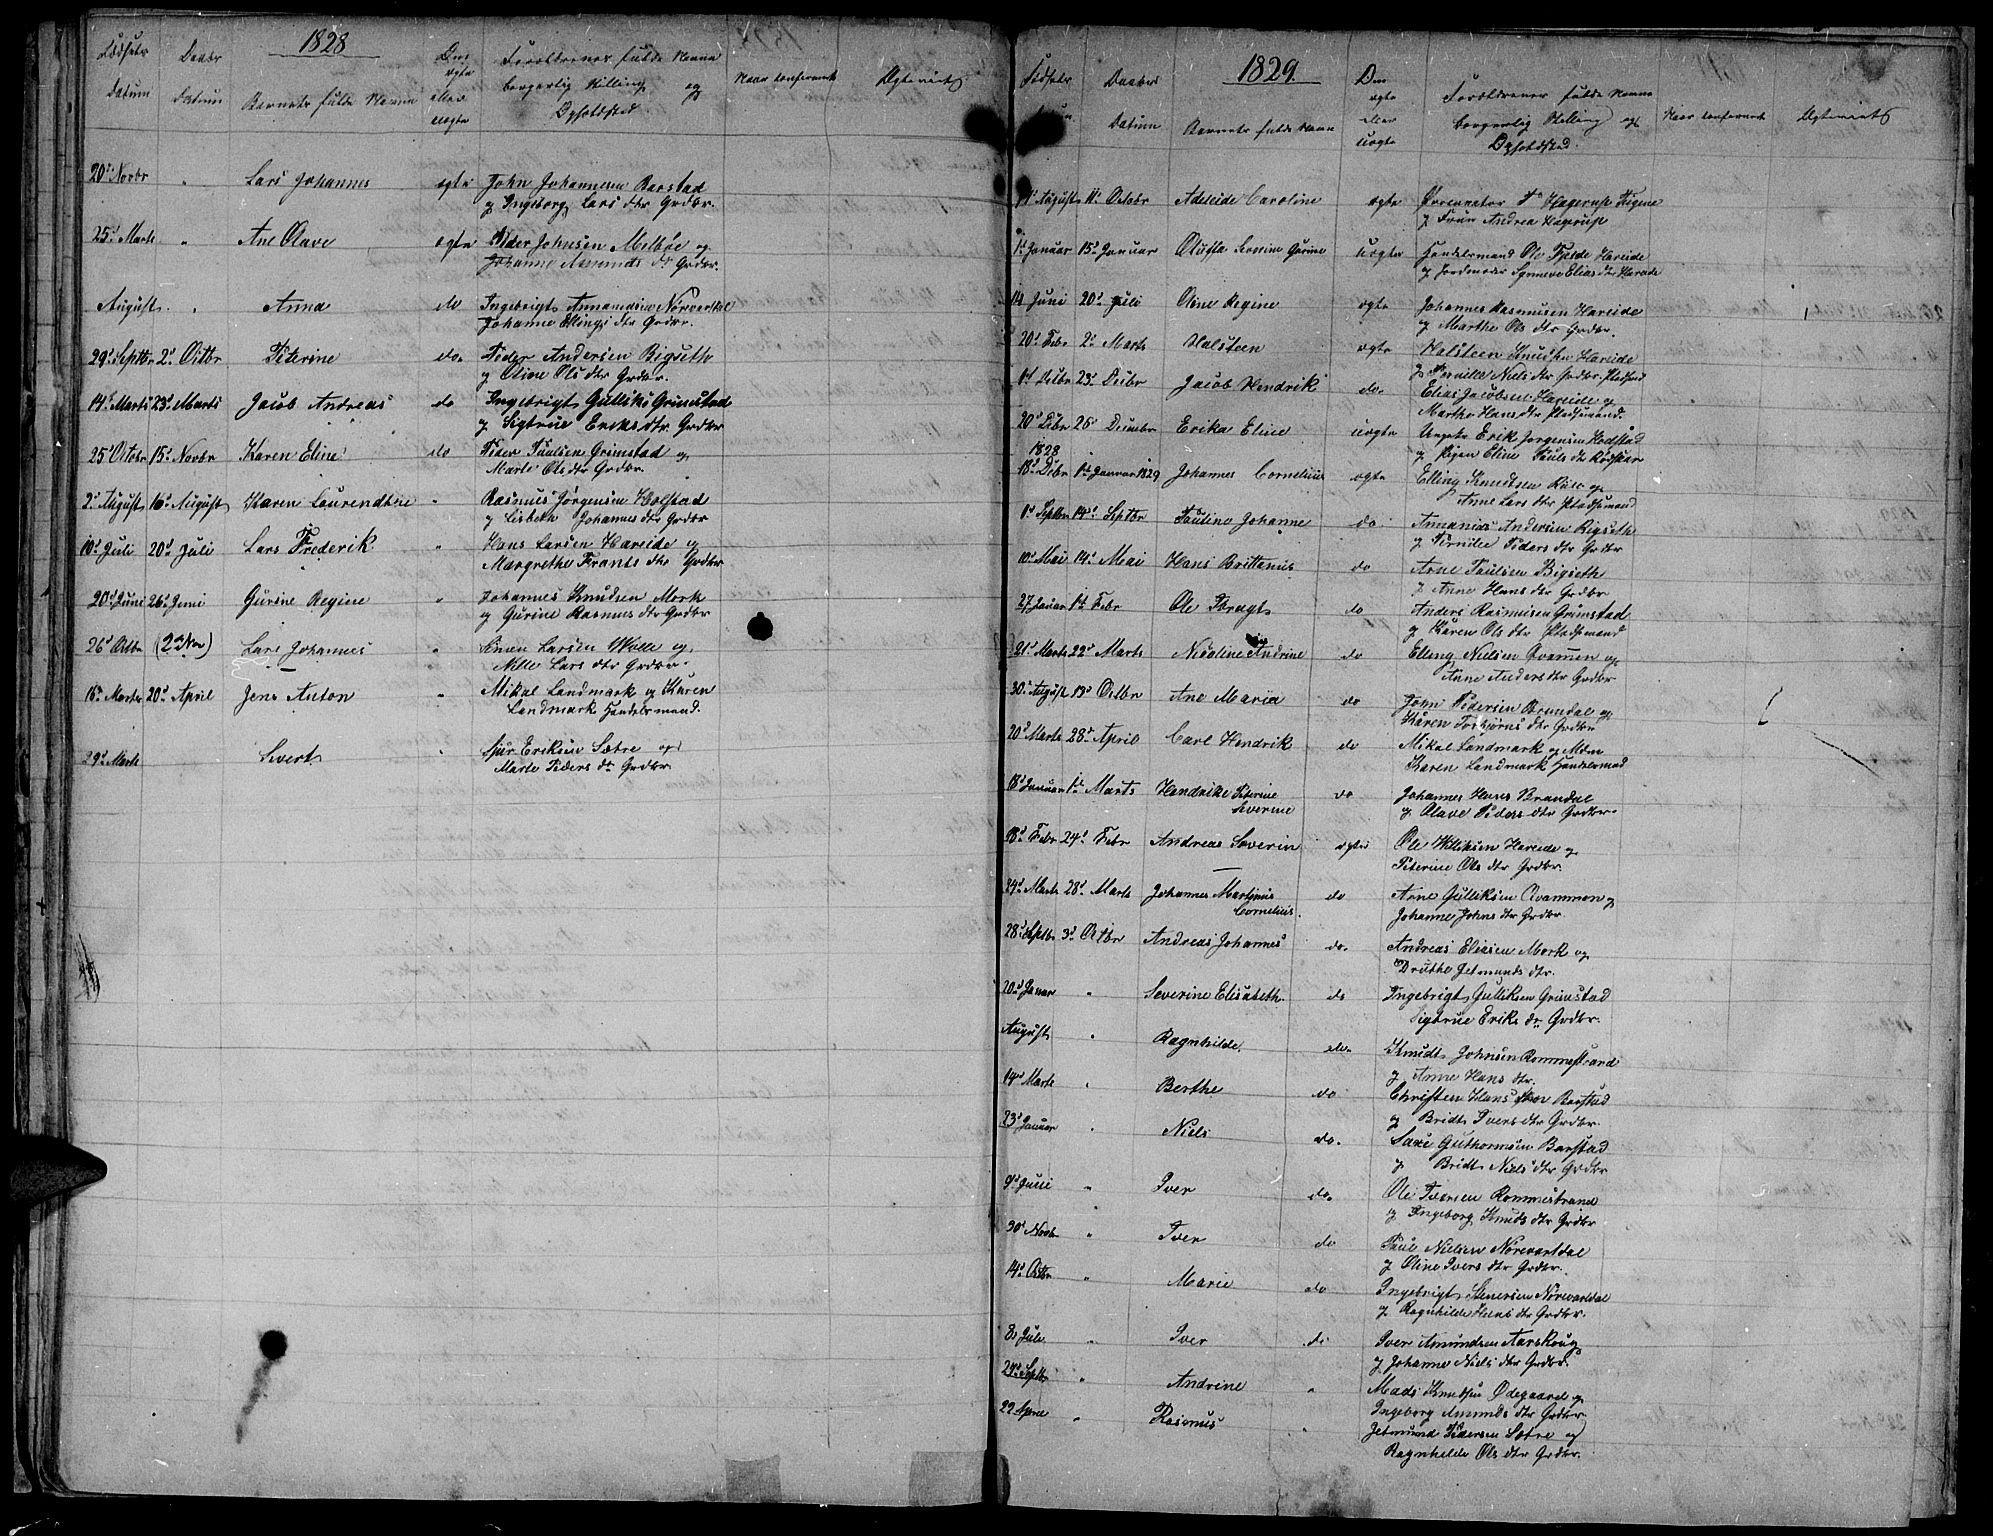 1828
Fødsels Datum
Daabs Datum
Barnets fulde Navn
Om ægte eller uægte
Forældrenes fulde Navne
borgerlig Stilling og
Opholdsted.
Naar confirmeret
20d Novbr " Lars Johannes ægte John Johannesen Barstad
og Ingeborg Lars dtr Grdbr.
25d Marts " Ane Olave ægte Peder Johnsen Melsøe og
Johanne Asmunds dr Grdbr.
August " Anna do Ingebrigt Annaniasen Nørvartdal
Johanne Ellings dtr Grdbr.
29d Septbr 2d Octbr Peterine do. Peder Andersen Bigseth
og Oline Ols dtr Grdbr.
14d Marts 23d Marts Jacob Andreas do Ingebrigt Gulliks Grimstad
og Sigtrue Eriks dtr Grdbr
25d Octbr 15d Novbr Karen Eline do Peder Paulsen Grimstad og
Marte Ols dtr Grdbr.
2d August 16d August Karen Laurendtine " Rasmus Jørgensen Holstad
og Lisbeth Johannes dtr Grdbr
10d Juli 20d Juli Lars Frederik " Hans Larsen Hareide og
Margrethe Frants dtr Grdbr
20d Juni 26d Juni Gurine Regine " Johannes Knudsen Mork
og Gurine Rasmus dtr Grdbr
26d Octbr (2d Nov) Lars Johannes " Larsen og
Lars dtr Grdbr.
16d Marts 20d April Jens Anton " Mikal Landmark og Karen
Landmark Handelsmand.
29d Marts Sivert " Sjur Eriksen Sætre og
Marte Peders dr Grdbr
1829.
Fødsels
Daabs Datum
Barnets fulde Navn
Om ægte eller uægte
Forældrenes fulde Navne
borgerlig Stilling og
Opholdsted.
Naar confirmeret
August 11d Octbr Adeleide Caroline ægte Hagerup
og Frue Andrea Hagerup
1d Januar 15d Januar Oluffa Severine Gurine uægte Handelsmand Ole Hareide
og Jordmoder Synneve Elias dtr Hareide
14 Juni 20d Juli Oline Regine ægte Johannes Rasmusen Hareide
og Marthe Ols dtr Grdbr.
20d Febr 2d Marts Halsteen ægte Halsteen Knudsen Hareide
og Pernille Niels dtr Grdbr. Pladsmd
1d Decbr 23d Decbr Jacob Hendrik do. Elias Jacobsen Hareide og
Marthe Hans dtr Pladsmand.
20d Decbr 26d December Erika Eline uægte Ungkr Erik Jørgensen Holstad
og Pigen Eline Pauls dtr Rødskar
1828
18d Decbr 1d Januar 1829 Johannes Cornelius ægte Elling Knudsen og
Anne Lars dtr Pladsmand
1d Septbr 14d Septbr Pauline Johanne do Annanias Andersen Bigseth
og Pernilee Peders dtr Grdbr
10d Mai 14d Mai Hans Brittanus do Arne Paulsen Bigseth
og Anne Hans dtr Grdbr
27 Januar 1d Febr Ole do Anders Rasmusen Grimstad
og Karen Ols dtr Pladsmand
21d Marts 22d Marts Nicoline Andrine do Elling Nielsen Qvammen og
Anne Anders dtr Grdbr
30d August 13d Octbr Ane Maria do John Pedersen Brandal og
Karen Torbjørns dtr Grdbr
20d Marts 28d April Carl Hendrik do Mikal Landmark og Mdm
Karen Landmark Handelsmad
18d Januar 1d Marts Hendrike Peterine
Severine do Johannes Hans Brandal
og Olave Peders dtr Grdbr.
18d Febr 24d Febr Andreas Severin ægte Ole Hareide og
Peterine Ols dtr Grdbr.
24d Marts 28d Marts Johannes Martinus
Cornelius. do Arne Gulliksen Qvammen og
Johanne Johns dtr Grdbr.
28d Septbr 3d Octbr Andreas Johannes do. Andreas Eliasen Mork og
Druthe Jetmunds dtr.
20d Januar " Severine Elisabeth do Ingebrigt Gulliksen Grimstad
Sigtrue Eriks dr Grdbr.
August " Ragnhilde. do. Knudt Johnsen Rommestrand
og Anne Hans dtr.
14d Marts " Berthe do Christen Hans Barstad
og Bridt Ivers dtr Grdbr.
23d Januar " Niels do. Saxe Guthormsen Barstad
og Bridt Niels dtr Grdbr
9d Juni " Iver do. Ole Iversen Rommestrand
og Ingeborg Knuds dtr Grdbr
30d Novbr " Iver do Paul Nielsen Nørvartdal
og Oline Ivers dtr Grdbr.
14d Octbr " Marie do Ingebrigt Stenersen Nørvartdal
og Ragnhilde Hans dtr Grdbr.
8d Juli " Iver do Iver Amundsen Aarskoug
og Johanne Niels dtr Grdbr.
29d Septbr " Andrine " Mads Knudsen Ødegaard og
Ingeborg Amunds dtr Grdbr
22 April " Rasmus " Jetmund Pedersen Sætre og
Ragnhelde Ols dtr Grdbr.